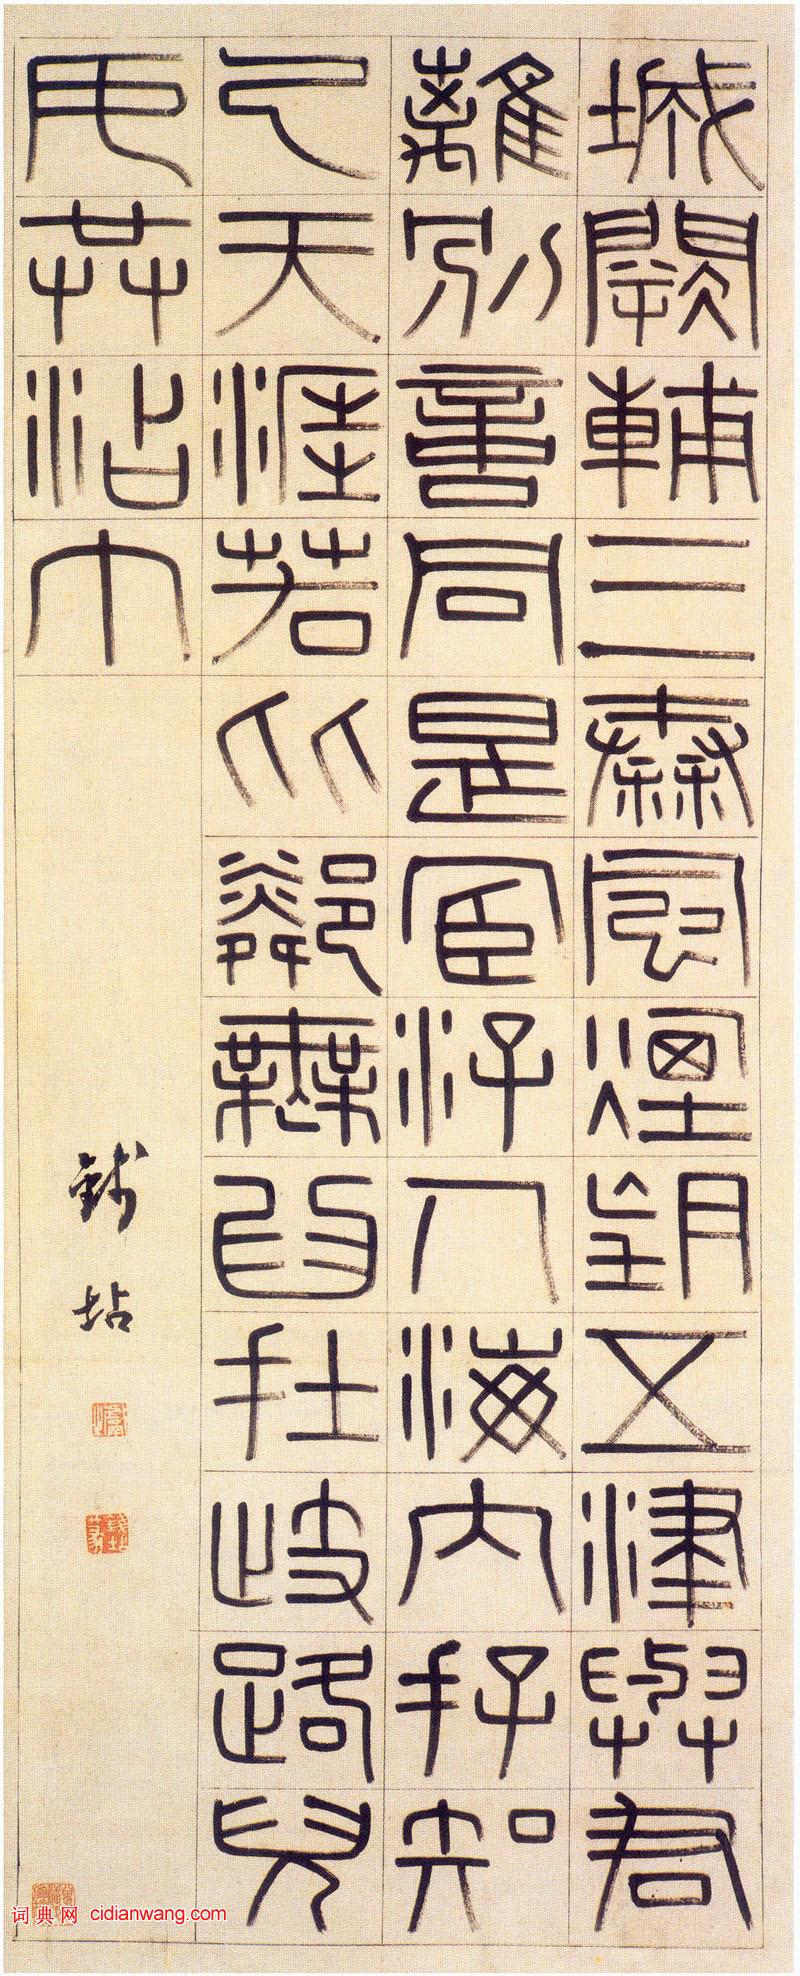 城闕輔三秦風煙望五津與君
離別意同是宦汓人海內存知
己天涯若比鄰無為在歧路兒
女共沾巾
錢坫
词典网 cidianwang.com